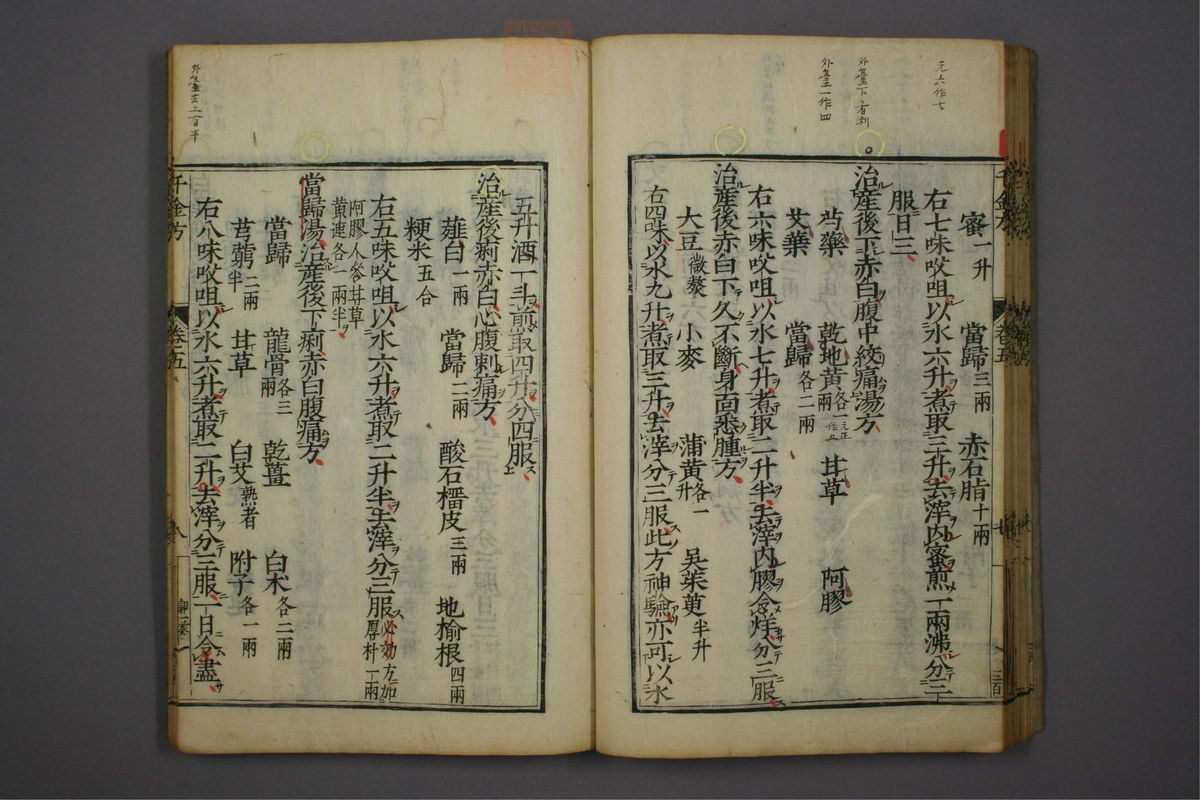 元六作七
外臺下有利
外臺一作四
蜜一升 當歸三兩 赤石脂十兩
右七味㕮咀以水六升煮取三升去滓內蜜煎一兩沸分二
服日三
治產後下赤白腹中絞痛湯方
芍藥 乾地黃各一兩 元正作五 甘草 阿膠
艾葉 當歸各二兩
右六味㕮咀以水七升煮取二升半去滓內膠令烊分三服
治產後赤白下久不斷身面悉腫方
大豆微熬 小麥 蒲黃各一升 吳茱萸半升
右四味以水九升煮取三升去滓分三服此方神驗亦可以水
五升酒一斗煎取四升分四服
治產後痢赤白心腹刺痛方
薤白一兩 當歸二兩 酸石榴皮三兩 地榆根四兩
粳米五合
右五味㕮咀以水六升煮取二升半去滓分三服必効方加厚朴一兩
阿膠人參甘草黃連各一兩半
當歸湯治產後下痢赤白腹痛方
當歸 龍骨各三兩 乾薑 白朮各二兩
芎藭二兩半 甘草 白艾熟者 附子各一兩
右八味㕮咀以水六升煮取二升去滓分三服一日令盡
千金方 卷五 八
千金方 卷五